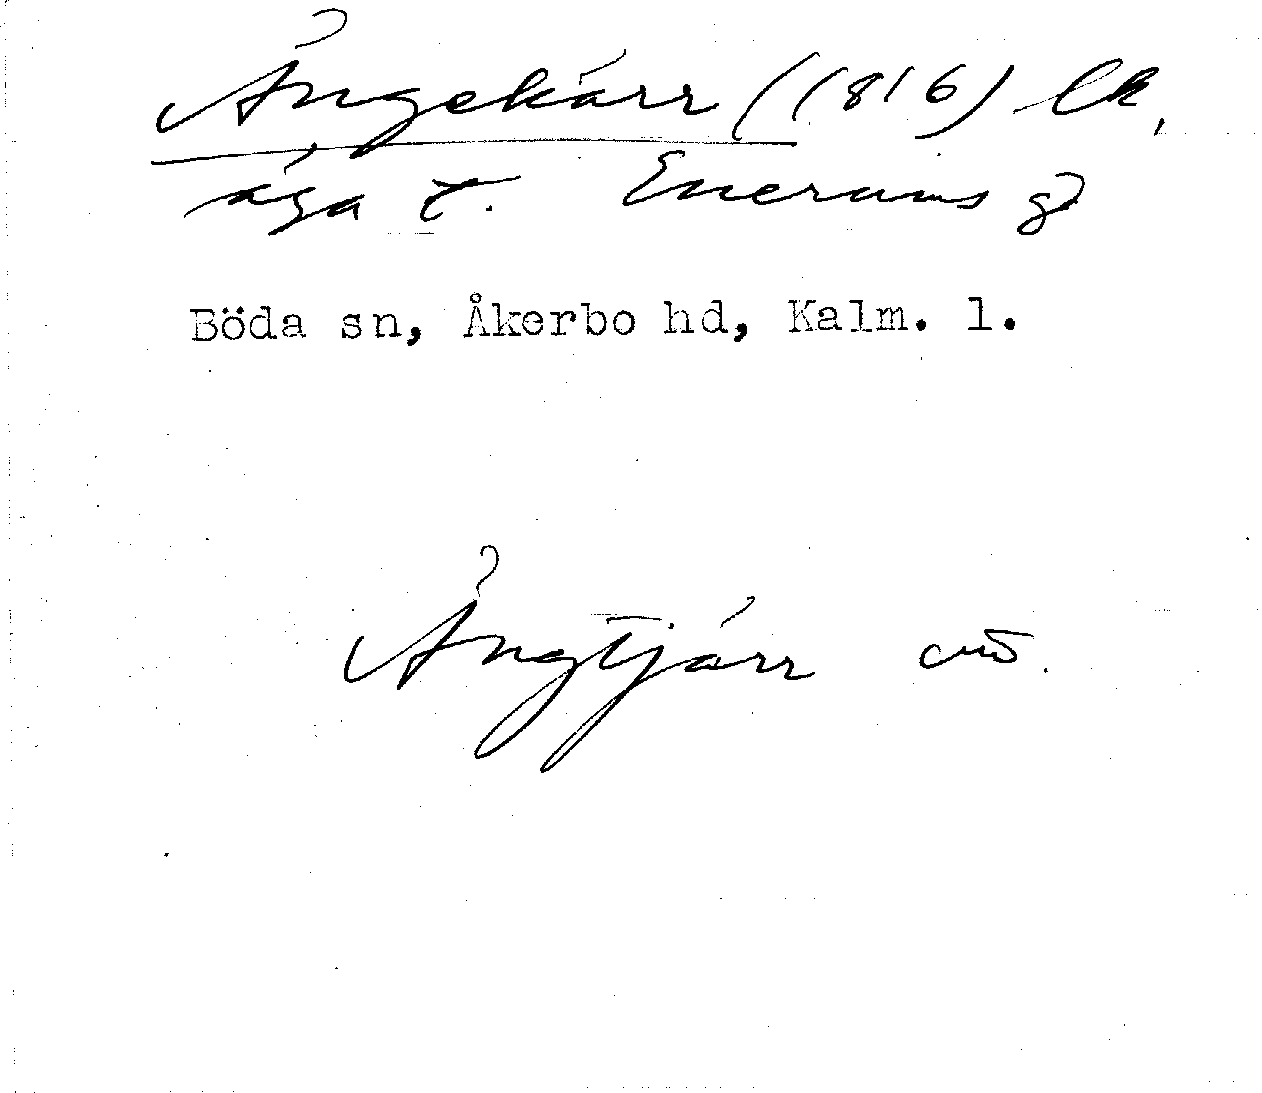 Ängekärr (1816) lk,
äga t. Enerums g
Böda sn, Åkerbo hd, Kalm. l.
Ängtjärr